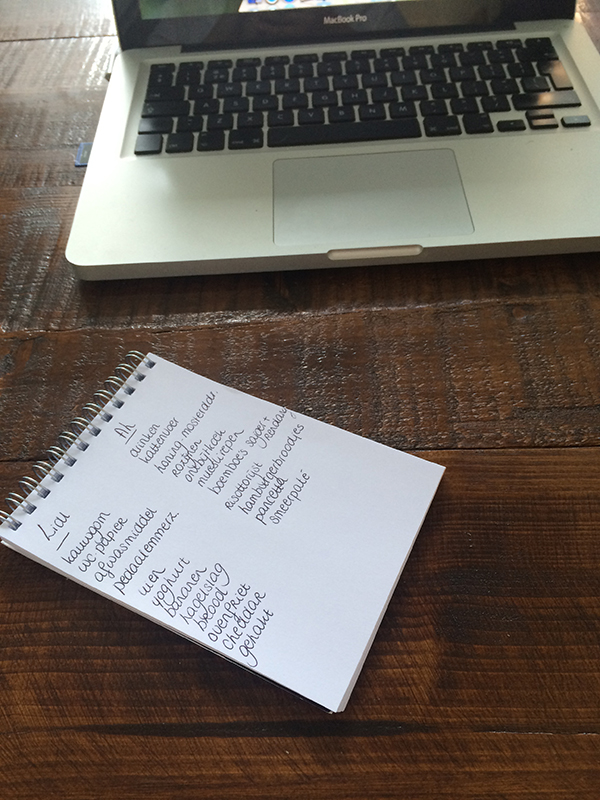 MacBook Pro
Lidl
kauwgom
wc papier
afwasmiddel
pedaalemmerz.
uien
yoghurt
bananen
hagelslag
brood
ovenfriet
cheddar
gehakt
AH
kattenvoer
honing-mosterddr.
rozijnen
ontbijtkoek
mueslirepen
boemboe's sajoer +
rendang
risottorijst
hamburgerbroodjes
pancetta
smeerpaté